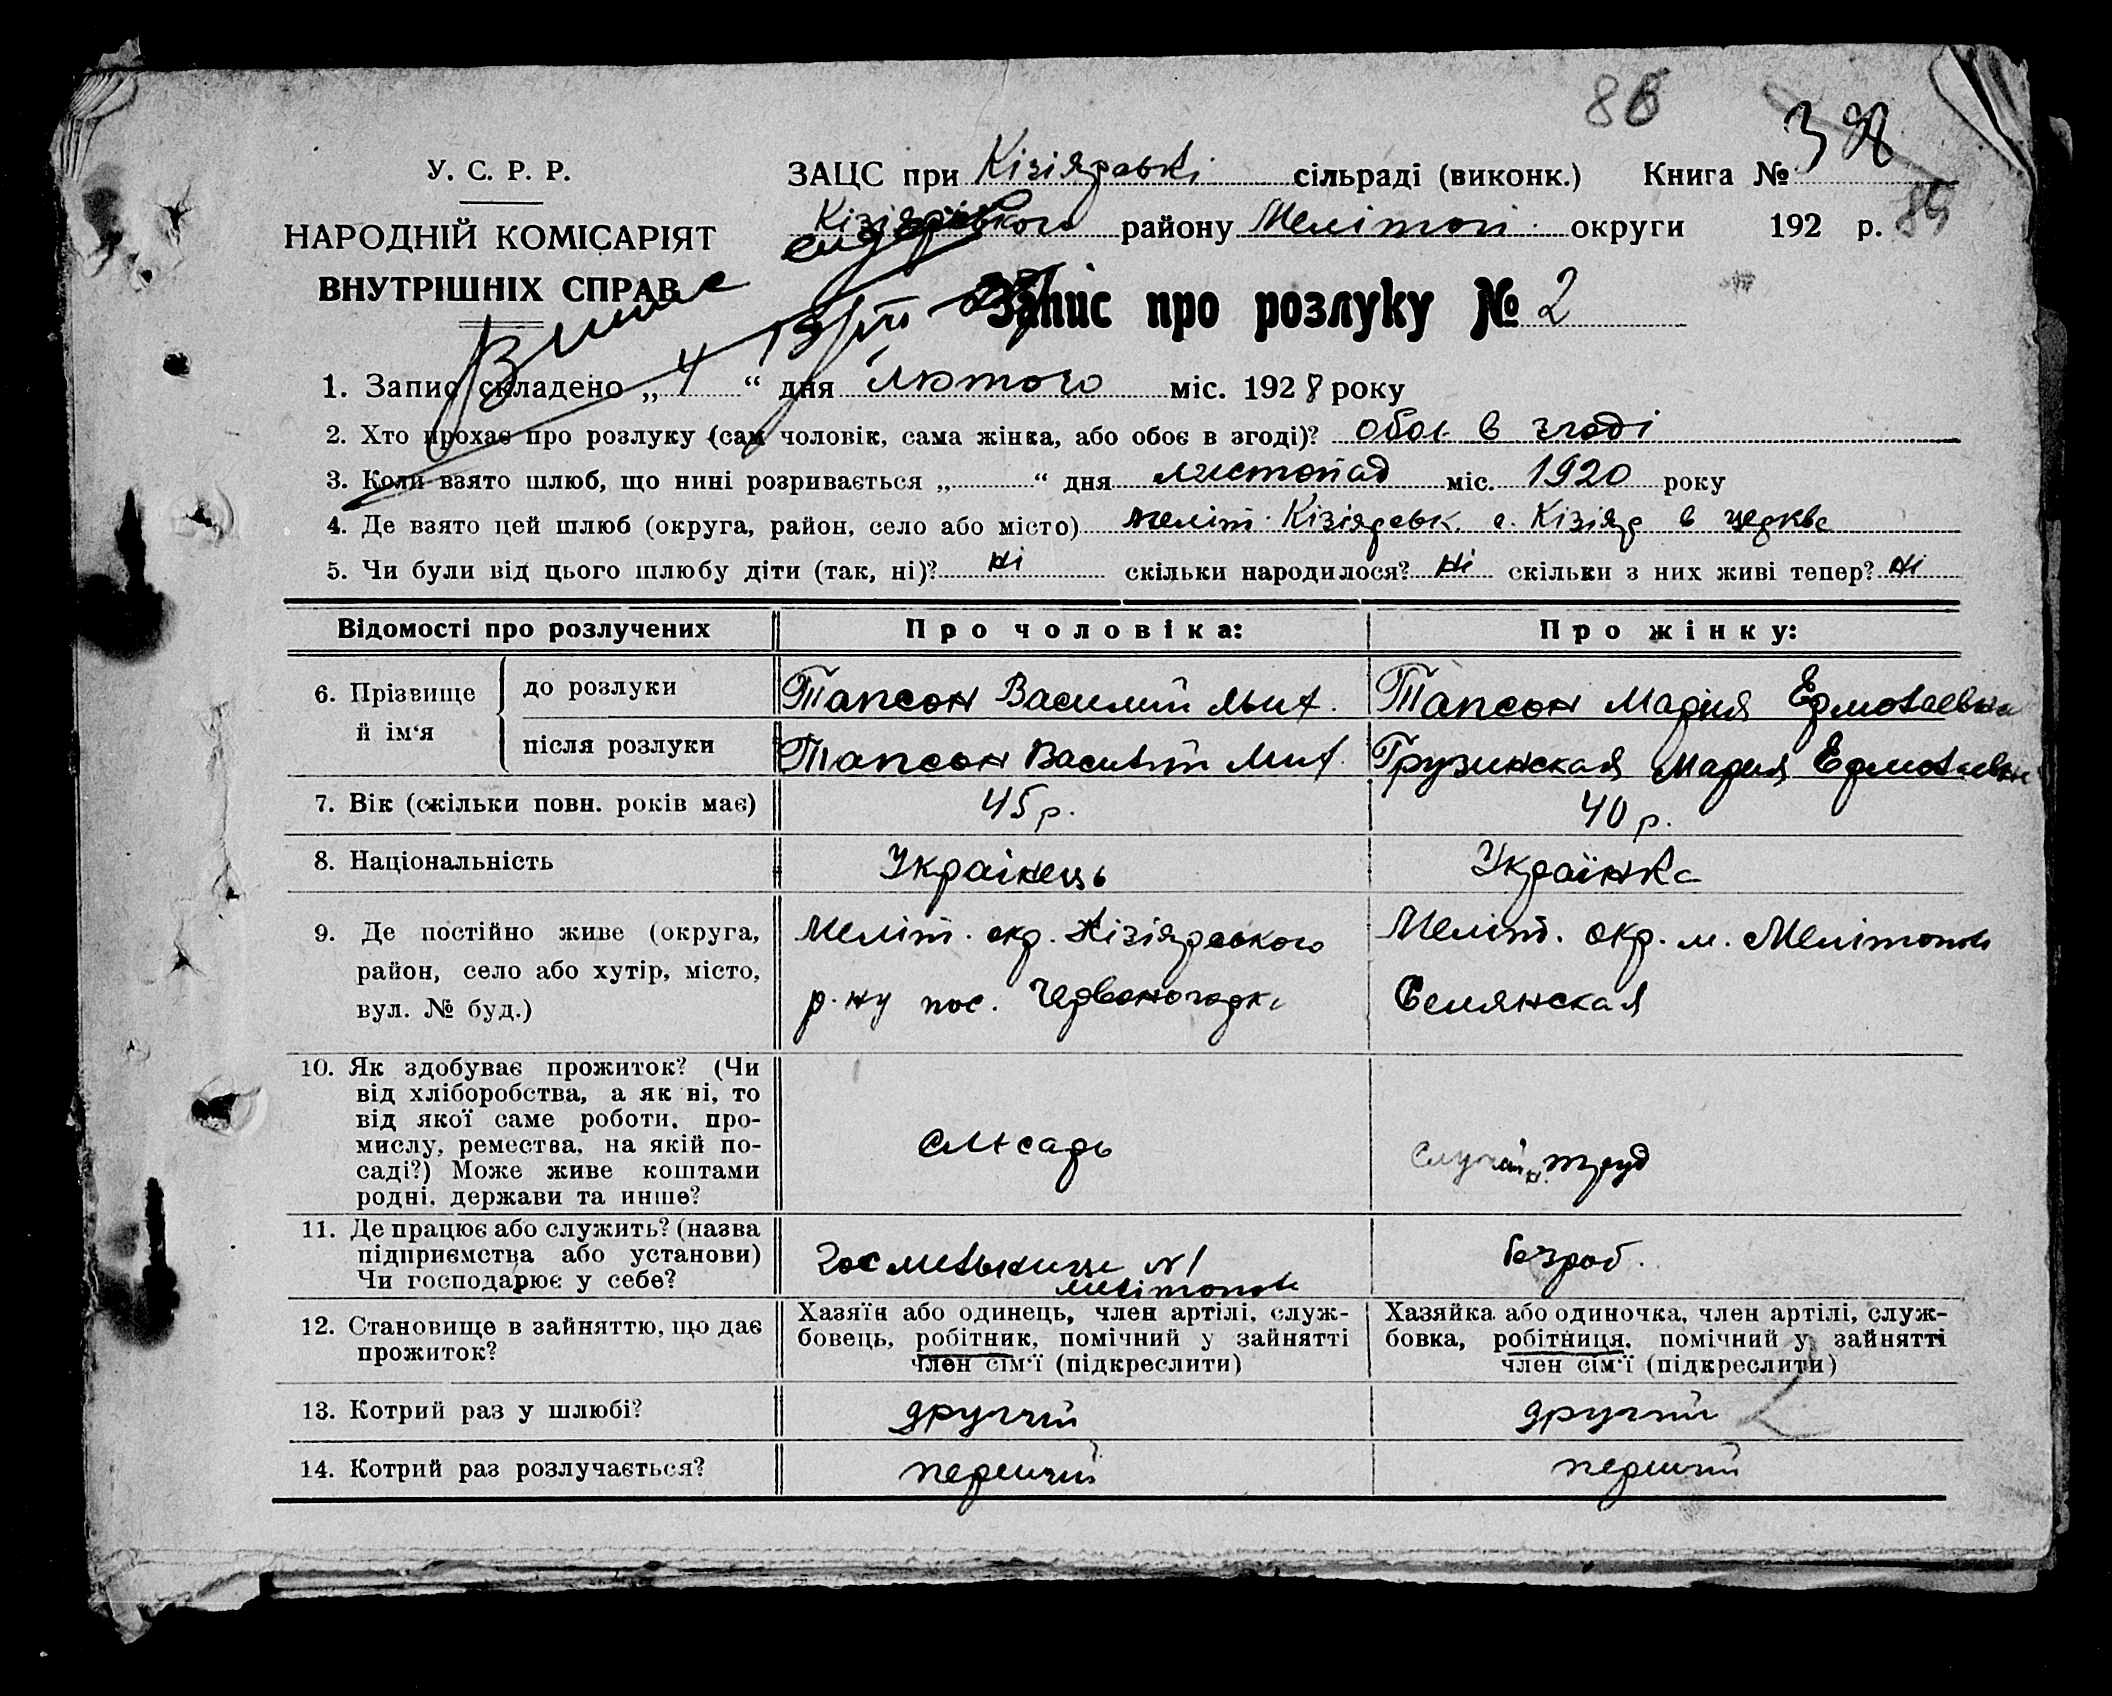 86
У. С. Р. Р.
НАРОДНІЙ КОМІСАРІЯТ
ВНУТРІШНІХ СПРАВ
ЗАЦС при Кізіярські сільраді (виконк.) Книга №
Кізіярського району Мелітоп. округи 192 р.
Запис про розлуку № 2
1. Запис складено „ 4 “ дня лютого міс. 1928 року
2. Хто прохає про розлуку (сам чоловік, сама жінка, або обоє в згоді)? обоє в згоді
3. Коли взято шлюб, що нині розривається „ “ дня листопад міс. 1920 року
4. Де взято цей шлюб (округа, район, село або місто) Меліт. Кізіярськ. с. Кізіяр в церкве
5. Чи були від цього шлюбу діти (так, ні)? ні скільки народилося? ні скільки з них живі тепер? ні
Відомості про розлучених Про чоловіка: Про жінку:
6. Прізвище й ім‘я
до розлуки Тапсон Василий Мих. Тапсон Мария Ермолаевна
після розлуки Тапсон Василий Мих. Грузинская Мария Ермолаевн
7. Вік (скільки повн. років має) 45 р. 40 р.
8. Національність Украінець Украінка
9. Де постійно живе (округа, район, село або хутір, місто, вул. № буд.)
Меліт. окр. Кізіярського
р-ну пос. Червоногорка
Меліт. окр. м. Мелітополь
Семянская
10. Як здобуває прожиток? (Чи
від хліборобства, а як ні, то
від якої саме роботи, про-
мислу, ремества, на якій по-
саді?) Може живе коштами
родні, держави та инше?
слюсарь
случайн. труд
11. Де працює або служить? (назва
підприємства або установи)
Чи господарює у себе?
Госмельница №1
Мелітополь
безроб.
12. Становище в зайняттю, що дає
прожиток?
Хазяїн або одинець, член артілі, служ-
бовець, робітник, помічний у зайнятті
член сім‘ї (підкреслити)
Хазяйка або одиночка, член артілі, служ-
бовка, робітниця, помічний у зайнятті
член сім‘ї (підкреслити)
13. Котрий раз у шлюбі? другий другий
14. Котрий раз розлучається? перший перший